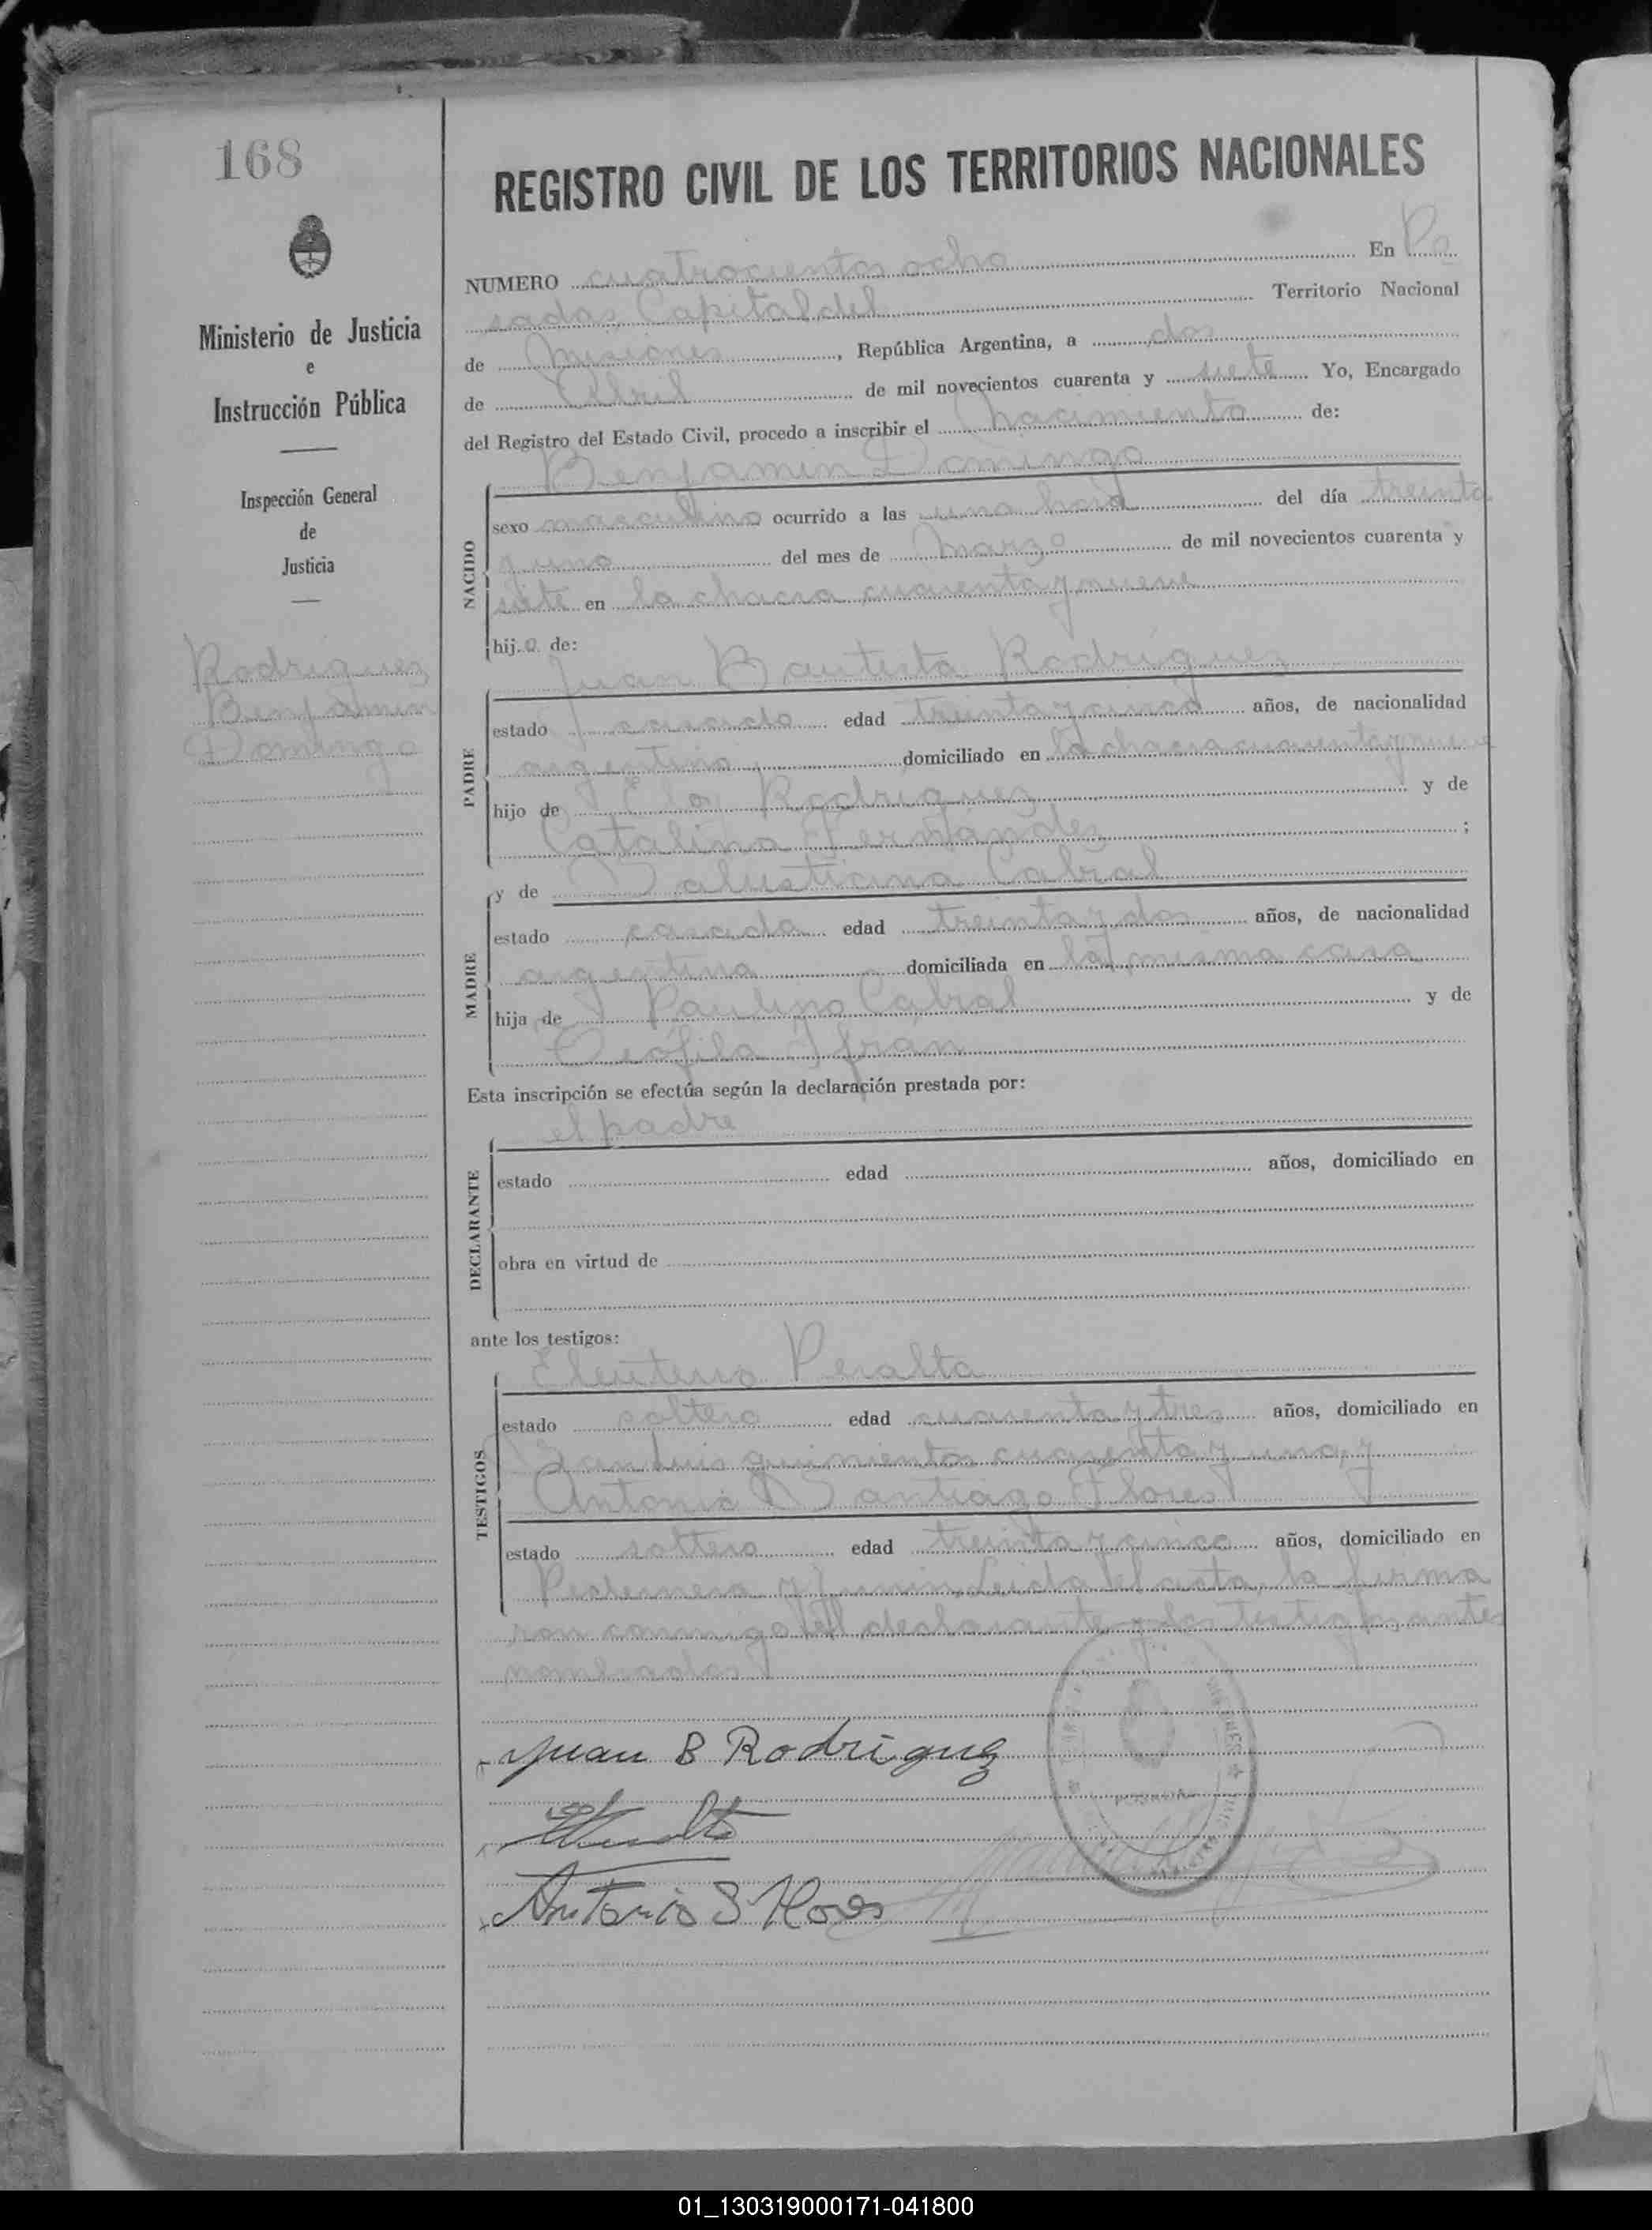 168
Ministerio de Justicia
e
Instrucción Pública
Inspección General
de
Justicia
Rodriguez
Benjamin
Domingo
REGISTRO CIVIL DE LOS TERRITORIOS NACIONALES
NUMERO cuatrocientos ocho En Po
sadas Capital del Territorio Nacional
de Misiones, República Argentina, a dos
de Abril de mil novecientos cuarenta y siete Yo, Encargado
del Registro del Estado Civil, procedo a inscribir el nacimiento de:
Benjamin Domingo
NACIDO
sexo masculino ocurrido a las una hora del día treinta
y uno del mes de Marzo de mil novecientos cuarenta y
siete en la chacra cuarenta y nueve
hijo de:
Juan Bautista Rodriguez
PADRE
estado casado edad treinta y cinco años, de nacionalidad
argentino domiciliado en la chacra cuarenta y nueve
hijo de Rodriguez y de
Catalina Fernández;
y de Salustiana Cabral
MADRE
estado casada edad treinta y dos años, de nacionalidad
argentina domiciliada en la misma casa
hija de Paulino Cabral y de
Teófila Ifrán
Esta inscripción se efectúa según la declaración prestada por:
el padre
DECLARANTE
estado edad años, domiciliado en
obra en virtud de
ante los testigos:
Eleuterio Peralta
TESTIGOS
estado soltero edad cuarenta y tres años, domiciliado en
San Luis quinientos cuarenta y uno, y
Antonio Santiago Flores
estado soltero edad treinta y cinco años, domiciliado en
Pedernera y Junin. Leida el acta, la firma
ron conmigo el declarante y los testigos antes
nombrados
Juan B Rodriguez
Antonio S Flores
POSADAS
01_130319000171-041800